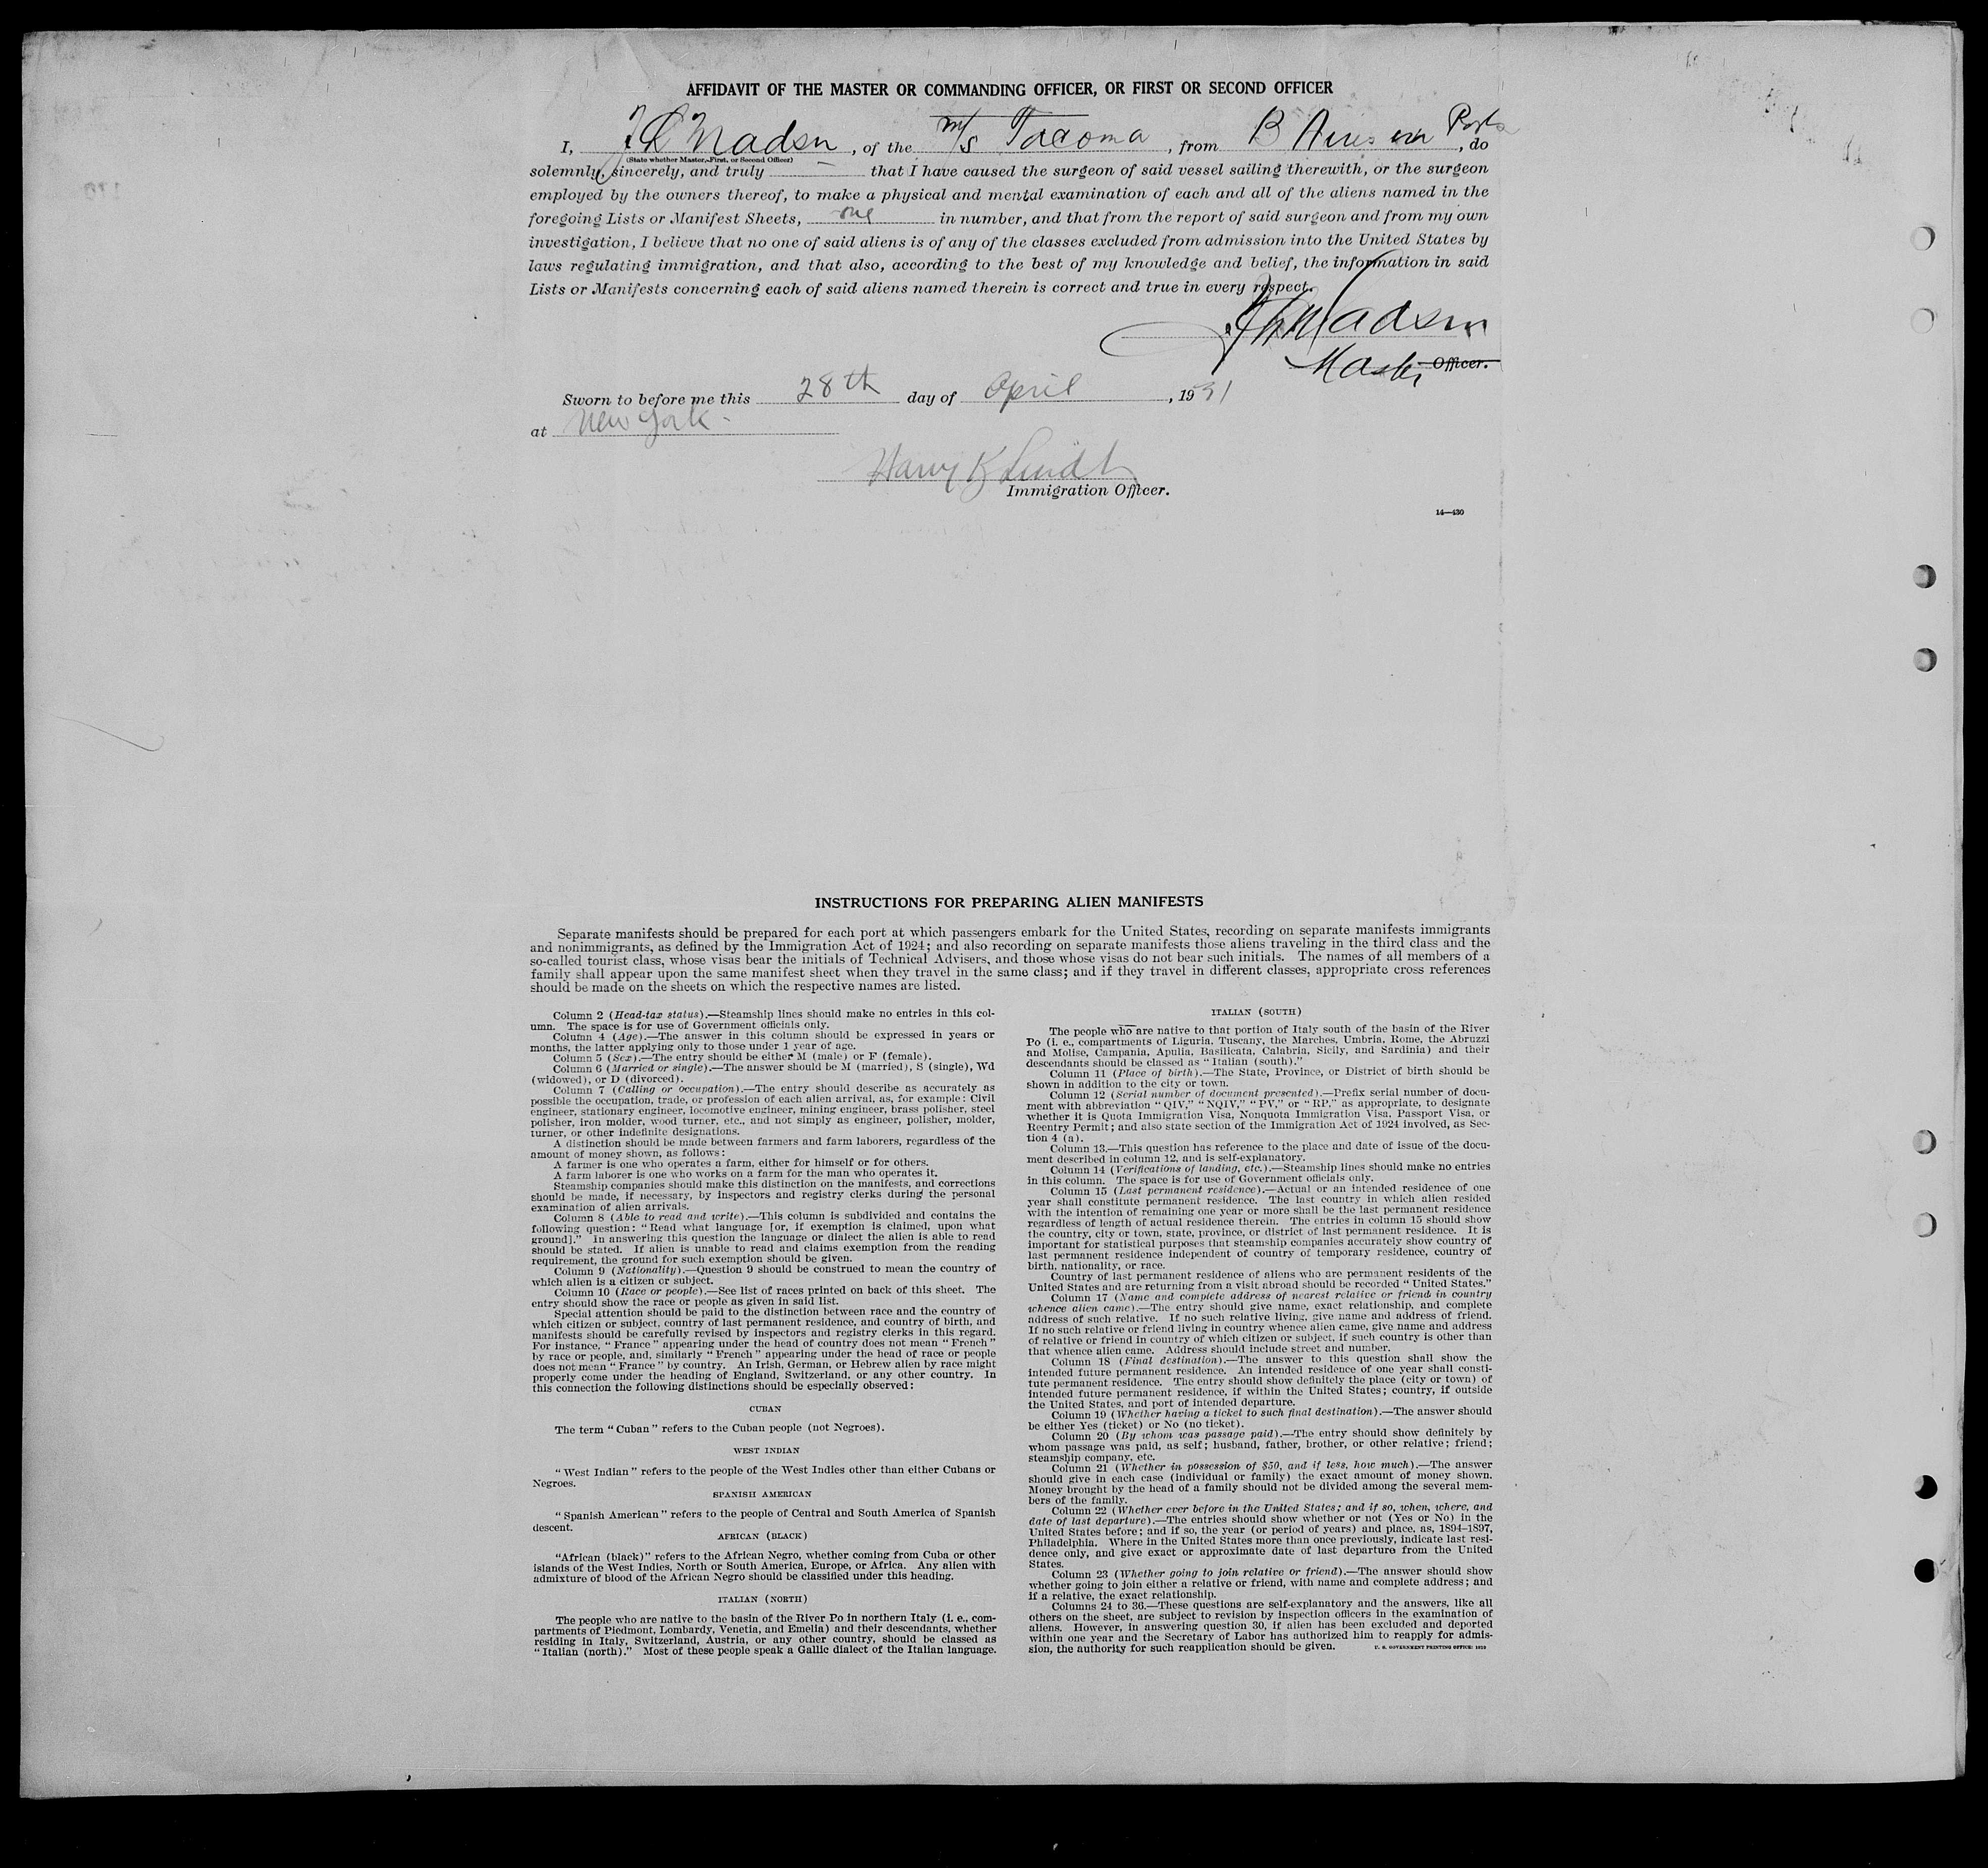 AFFIDAVIT OF THE MASTER OR COMMANDING OFFICER, OR FIRST OR SECOND OFFICER
I, Madsen, of the M/S Tacoma, from B Aires, do
(State whether Master, First, or Second Officer)
solemnly, sincerely, and truly that I have caused the surgeon of said vessel sailing therewith, or the surgeon
employed by the owners thereof, to make a physical and mental examination of each and all of the aliens named in the
foregoing Lists or Manifest Sheets, one in number, and that from the report of said surgeon and from my own
investigation, I believe that no one of said aliens is of any of the classes excluded from admission into the United States by
laws regulating immigration, and that also, according to the best of my knowledge and belief, the information in said
Lists or Manifests concerning each of said aliens named therein is correct and true in every respect.
Madsen
Master Officer.
Sworn to before me this 28th day of April, 1931
at New York
Harry K
Immigration Officer.
14—430
INSTRUCTIONS FOR PREPARING ALIEN MANIFESTS
Separate manifests should be prepared for each port at which passengers embark for the United States, recording on separate manifests immigrants
and nonimmigrants, as defined by the Immigration Act of 1924; and also recording on separate manifests those aliens traveling in the third class and the
so-called tourist class, whose visas bear the initials of Technical Advisers, and those whose visas do not bear such initials. The names of all members of a
family shall appear upon the same manifest sheet when they travel in the same class; and if they travel in different classes, appropriate cross references
should be made on the sheets on which the respective names are listed.
Column 2 (Head-tax status).—Steamship lines should make no entries in this col-
umn. The space is for use of Government officials only.
Column 4 (Age).—The answer in this column should be expressed in years or
months, the latter applying only to those under 1 year of age.
Column 5 (Sex).—The entry should be either M (male) or F (female).
Column 6 (Married or single).—The answer should be M (married), S (single), Wd
(widowed), or D (divorced).
Column 7 (Calling or occupation).—The entry should describe as accurately as
possible the occupation, trade, or profession of each alien arrival, as, for example: Civil
engineer, stationary engineer, locomotive engineer, mining engineer, brass polisher, steel
polisher, iron molder, wood turner, etc., and not simply as engineer, polisher, molder,
turner, or other indefinite designations.
A distinction should be made between farmers and farm laborers, regardless of the
amount of money shown, as follows:
A farmer is one who operates a farm, either for himself or for others.
A farm laborer is one who works on a farm for the man who operates it.
Steamship companies should make this distinction on the manifests, and corrections
should be made, if necessary, by inspectors and registry clerks during the personal
examination of alien arrivals.
Column 8 (Able to read and write).—This column is subdivided and contains the
following question: “Read what language [or, if exemption is claimed, upon what
ground].” In answering this question the language or dialect the alien is able to read
should be stated. If alien is unable to read and claims exemption from the reading
requirement, the ground for such exemption should be given.
Column 9 (Nationality).—Question 9 should be construed to mean the country of
which alien is a citizen or subject.
Column 10 (Race or people).—See list of races printed on back of this sheet. The
entry should show the race or people as given in said list.
Special attention should be paid to the distinction between race and the country of
which citizen or subject, country of last permanent residence, and country of birth, and
manifests should be carefully revised by inspectors and registry clerks in this regard.
For instance, “France” appearing under the head of country does not mean “French”
by race or people, and, similarly “French” appearing under the head of race or people
does not mean “France” by country. An Irish, German, or Hebrew alien by race might
properly come under the heading of England, Switzerland, or any other country. In
this connection the following distinctions should be especially observed:
CUBAN
The term “Cuban” refers to the Cuban people (not Negroes).
WEST INDIAN
“West Indian” refers to the people of the West Indies other than either Cubans or
Negroes.
SPANISH AMERICAN
“Spanish American” refers to the people of Central and South America of Spanish
descent.
AFRICAN (BLACK)
“African (black)” refers to the African Negro, whether coming from Cuba or other
islands of the West Indies, North or South America, Europe, or Africa. Any alien with
admixture of blood of the African Negro should be classified under this heading.
ITALIAN (NORTH)
The people who are native to the basin of the River Po in northern Italy (i. e., com-
partments of Piedmont, Lombardy, Venetia, and Emelia) and their descendants, whether
residing in Italy, Switzerland, Austria, or any other country, should be classed as
“Italian (north).” Most of these people speak a Gallic dialect of the Italian language.
ITALIAN (SOUTH)
The people who are native to that portion of Italy south of the basin of the River
Po (i. e., compartments of Liguria, Tuscany, the Marches, Umbria, Rome, the Abruzzi
and Molise, Campania, Apulia, Basilicata, Calabria, Sicily, and Sardinia) and their
descendants should be classed as “Italian (south).”
Column 11 (Place of birth).—The State, Province, or District of birth should be
shown in addition to the city or town.
Column 12 (Serial number of document presented).—Prefix serial number of docu-
ment with abbreviation “QIV,” “NQIV,” “PV,” or “RP,” as appropriate, to designate
whether it is Quota Immigration Visa, Nonquota Immigration Visa, Passport Visa, or
Reentry Permit; and also state section of the Immigration Act of 1924 involved, as Sec-
tion 4 (a).
Column 13.—This question has reference to the place and date of issue of the docu-
ment described in column 12, and is self-explanatory.
Column 14 (Verifications of landing, etc.).—Steamship lines should make no entries
in this column. The space is for use of Government officials only.
Column 15 (Last permanent residence).—Actual or an intended residence of one
year shall constitute permanent residence. The last country in which alien resided
with the intention of remaining one year or more shall be the last permanent residence
regardless of length of actual residence therein. The entries in column 15 should show
the country, city or town, state, province, or district of last permanent residence. It is
important for statistical purposes that steamship companies accurately show country of
last permanent residence independent of country of temporary residence, country of
birth, nationality, or race.
Country of last permanent residence of aliens who are permanent residents of the
United States and are returning from a visit abroad should be recorded “United States.”
Column 17 (Name and complete address of nearest relative or friend in country
whence alien came).—The entry should give name, exact relationship, and complete
address of such relative. If no such relative living, give name and address of friend.
If no such relative or friend living in country whence alien came, give name and address
of relative or friend in country of which citizen or subject, if such country is other than
that whence alien came. Address should include street and number.
Column 18 (Final destination).—The answer to this question shall show the
intended future permanent residence. An intended residence of one year shall consti-
tute permanent residence. The entry should show definitely the place (city or town) of
intended future permanent residence, if within the United States; country, if outside
the United States, and port of intended departure.
Column 19 (Whether having a ticket to such final destination).—The answer should
be either Yes (ticket) or No (no ticket).
Column 20 (By whom was passage paid).—The entry should show definitely by
whom passage was paid, as self; husband, father, brother, or other relative; friend;
steamship company, etc.
Column 21 (Whether in possession of $50, and if less, how much).—The answer
should give in each case (individual or family) the exact amount of money shown.
Money brought by the head of a family should not be divided among the several mem-
bers of the family.
Column 22 (Whether ever before in the United States; and if so, when, where, and
date of last departure).—The entries should show whether or not (Yes or No) in the
United States before; and if so, the year (or period of years) and place, as, 1894–1897,
Philadelphia. Where in the United States more than once previously, indicate last resi-
dence only, and give exact or approximate date of last departure from the United
States.
Column 23 (Whether going to join relative or friend).—The answer should show
whether going to join either a relative or friend, with name and complete address; and
if a relative, the exact relationship.
Columns 24 to 36.—These questions are self-explanatory and the answers, like all
others on the sheet, are subject to revision by inspection officers in the examination of
aliens. However, in answering question 30, if alien has been excluded and deported
within one year and the Secretary of Labor has authorized him to reapply for admis-
sion, the authority for such reapplication should be given.
U. S. GOVERNMENT PRINTING OFFICE: